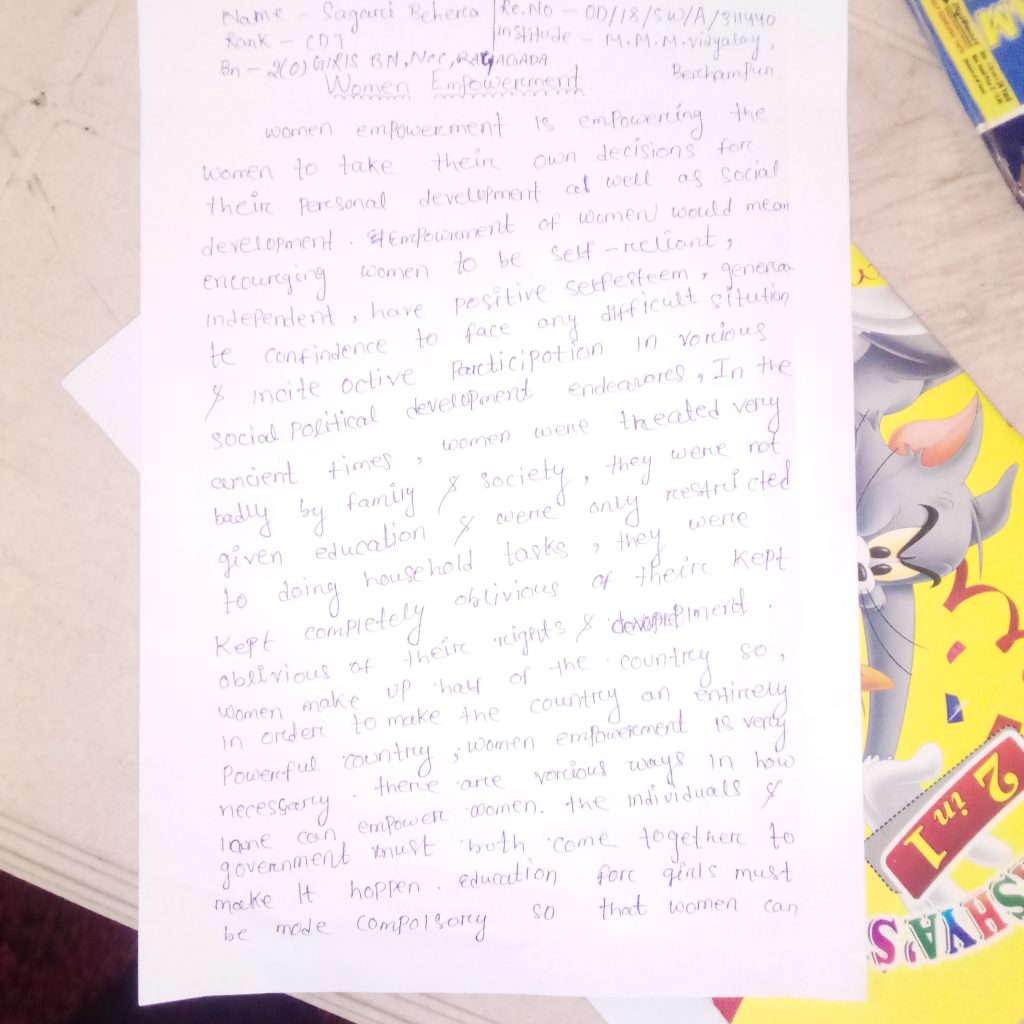 Name - Sagarci Beherca | Re.No - OD/18/SW/A/311440
Rank - CDT | institude - M.M.M.vidyalay,
Bn - 2(O) Girls BN, Ncc, RAYAGADA Berchampur.
Women Empowerment
women empowercment is empowercing the
women to take their own decisions forc
their percsonal development as well as social
development. Empowrment of women would mean
encourging women to be self-rceliant,
independent, have positive selfesteem, genera
te confindence to face any difficult sitution
& incite active parcticipation in varcious
social political development endeavorces, In the
ancient times, women were trceated very
badly by family & society, they were not
given education & were only rcestricted
to doing household tasks, they were
kept completely oblivious of their kept
oblivious of their rights & development.
Women make up half of the country so,
in order to make the country an entircely
powercful country, women empowercment is very
necessarcy. there are varcious ways in how
one can empowerc women. the individuals &
government must both come together to
make it happen. education forc girls must
be made compolsorcy so that women can
2 in 1
SHYA'S